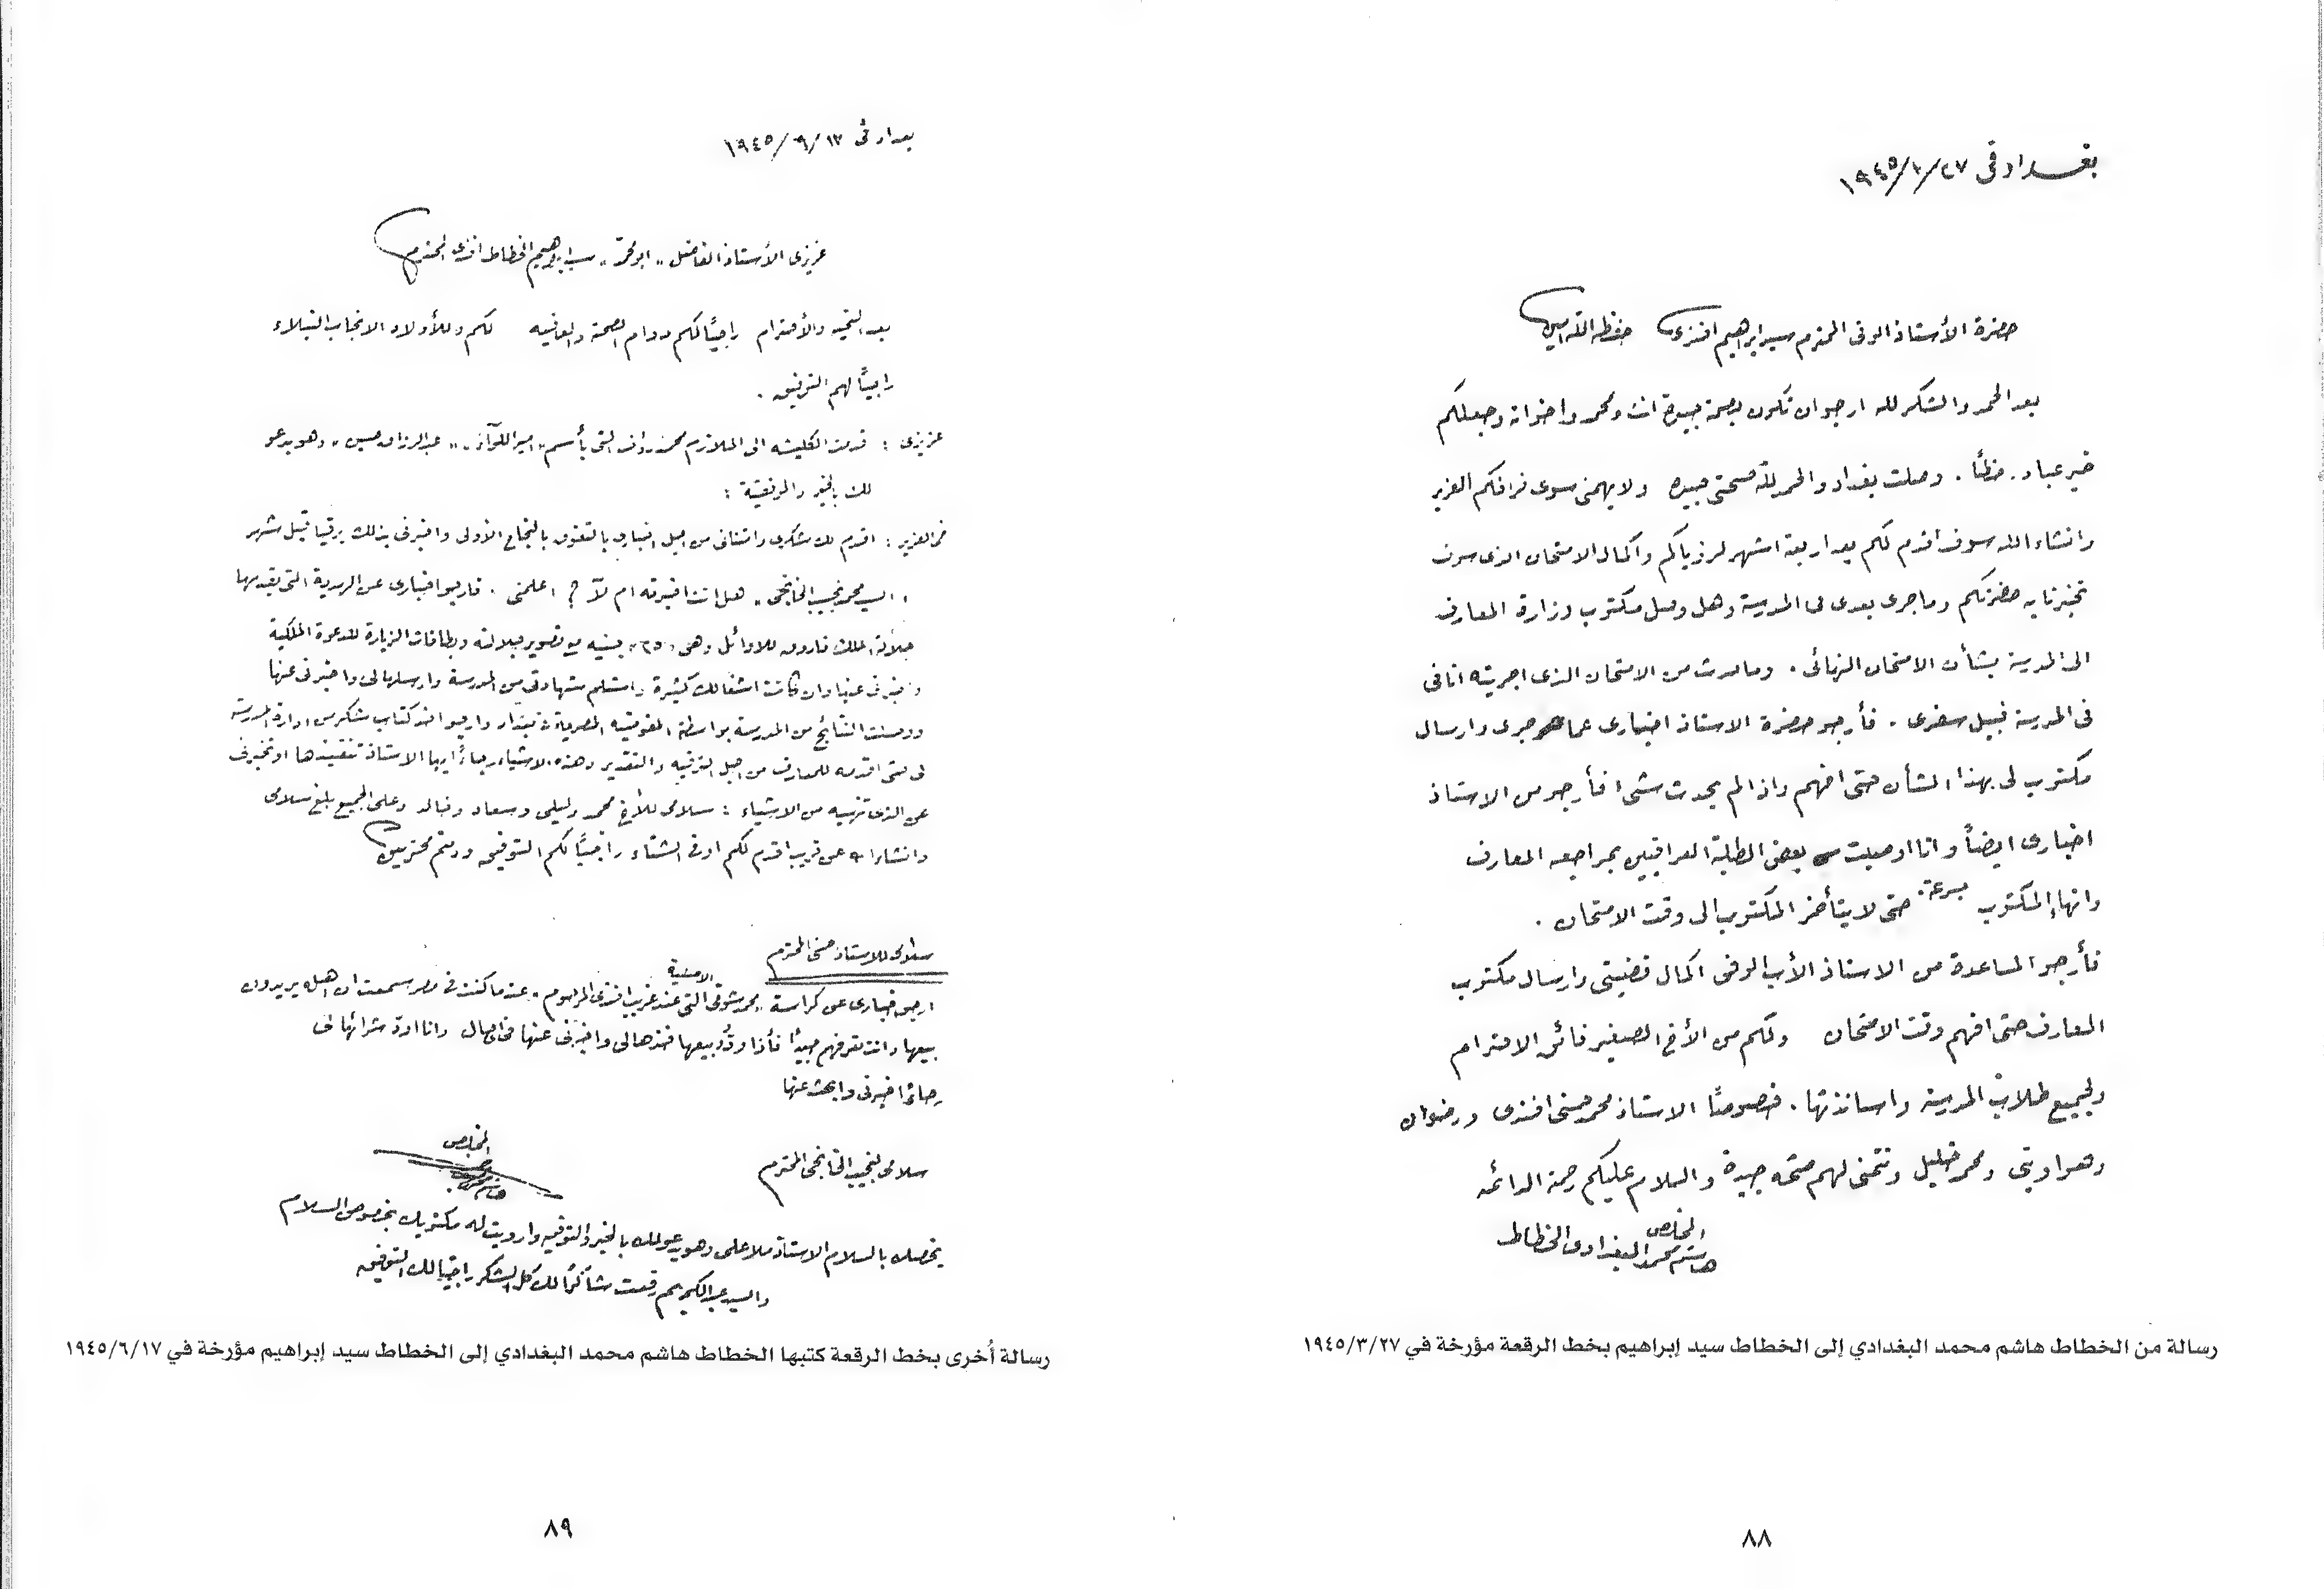 بغداد في ٢٧/٣/١٩٤٥
حضرة الأستاذ الوفى المحترم سيد ابراهيم افندى حفظه الله امين
بعد الحمد والشكر لله ارجو ان تكون بصحة جيدة انت ومحمد واخوانه وجعلكم
خير عباده حظاً . وصلت بغداد والحمد لله صحتى جيده ولا يهمنى سوى فراقكم العزيز
وانشاء الله سوف اقدم لكم بعد اربعة اشهر لرؤياكم واكمال الامتحان الذى سوف
تخبرنا به حضرتكم وما جرى بعدى فى المدرسة وهل وصل مكتوب وزارة المعارف
الى المدرسة بشأن الامتحان النهائى . وما صرت من الامتحان الذى اجريته انا فى
فى المدرسة قبيل سفرى . فأرجو حضرة الاستاذ اخبارى عما جرى وارسال
مكتوب لى بهذا الشأن حتى افهم واذا لم يحدث شئ فأرجو من الاستاذ
اخبارى ايضاً وانا اوصيت بعض الطلبة العراقيين بمراجعه المعارف
وانهاء المكتوب بسرعة حتى لا يتأخر المكتوب الى وقت الامتحان .
فأرجو المساعدة من الاستاذ الأب الوفى اكمال قضيتى وارسال مكتوب
المعارف حتى افهم وقت الامتحان ولكم من الأخ الصغير فائق الاحترام
ولجميع طلاب المدرسة واساتذتها . خصوصاً الاستاذ محمد حسنى افندى ورضوان
وهواوينى ومحمد خليل ونتمنى لهم صحه جيدة والسلام عليكم رحمة الدائمه
المخلص
هاشم محمد البغدادى الخطاط
رسالة من الخطاط هاشم محمد البغدادي إلى الخطاط سيد إبراهيم بخط الرقعة مؤرخة في ١٩٤٥/٣/٢٧
٨٨
بغداد فى ١٧/٦/١٩٤٥
عزيزى الأستاذ الفاضل " ابو محمد " سيد ابراهيم الخطاط افندى المحترم
بعد التحيه والأحترام راجياً لكم دوام الصحة والعافيه لكم وللأولاد الانجاب النبلاء
راجياً لهم التوفيق .
عزيزى : قدمت الكليشه الى الملازم محمد رؤف التى بأسم " امير اللواء " " عبد الرزاق حسين " وهو يدعو
لك بالخير والموفقية :
اقدم لك شكرى وامتنانى من اجل اخبارى بالتفوق بالنجاح الأولى واخبرنى بذلك برقيا قبل شهر
" السيد محمد نجيب الخانجى " هل انت اخبرته ام لا ؟ اعلمنى . فارجو اخبارى عن الهدية التى يقدمها
جلالة الملك فاروق للاوائل وهى " ٢٥ " جنيه مع تصوير جلالته وبطاقات الزيارة للدعوة الملكية
واخبرنى عنها وان كانت اشغالك كثيرة واستلم شهادتى من المدرسة وارسلها لى واخبرنى عنها
ووصلت النتائج من المدرسة بواسطة القنصلية المصرية فى بغداد وارجو اخذ كتاب شكر من ادارة المدرسة
لى حتى اقدمه للمعارف من اجل الترقيه والتقدير وهذه الاشياء رجاءً ايها الاستاذ تنفيذها او تخبرنى
عن الذى تنهيه من الاشياء : سلامى للأخ محمد وليلى وسعاد وخالد وعلى الجميع بلغ سلامى
وانشاء الله عن قريب اقدم لكم او فى الشتاء راجياً لكم التوفيق ودمتم محترمين
سلامى للاستاذ حسنى المحترم
ارجو اخبارى عن كراسة " محمد شوقى الاصلية التى عند غريب افندى المرحوم " عندما كنت فى مصر سمعت ان اهله يريدون
بيعها وانت تعرفهم جيداً فأذا ودّو بيعها فخذها لى واخبرنى عنها فى الحال وانا اودّ شرائها لى
رجاءً اخبرنى وابحث عنها
سلامى لنجيب الخانجى المحترم
المخلص
يخصك بالسلام الاستاذ ملا على وهو يدعو لك بالخير والتوفيق واوريت له مكتوبك بخصوص السلام
والسيد عبد الكريم رفعت شاكراً لك كل الشكر راجياً لك التوفيق
رسالة أخرى بخط الرقعة كتبها الخطاط هاشم محمد البغدادي إلى الخطاط سيد إبراهيم مؤرخة في ١٩٤٥/٦/١٧
٨٩